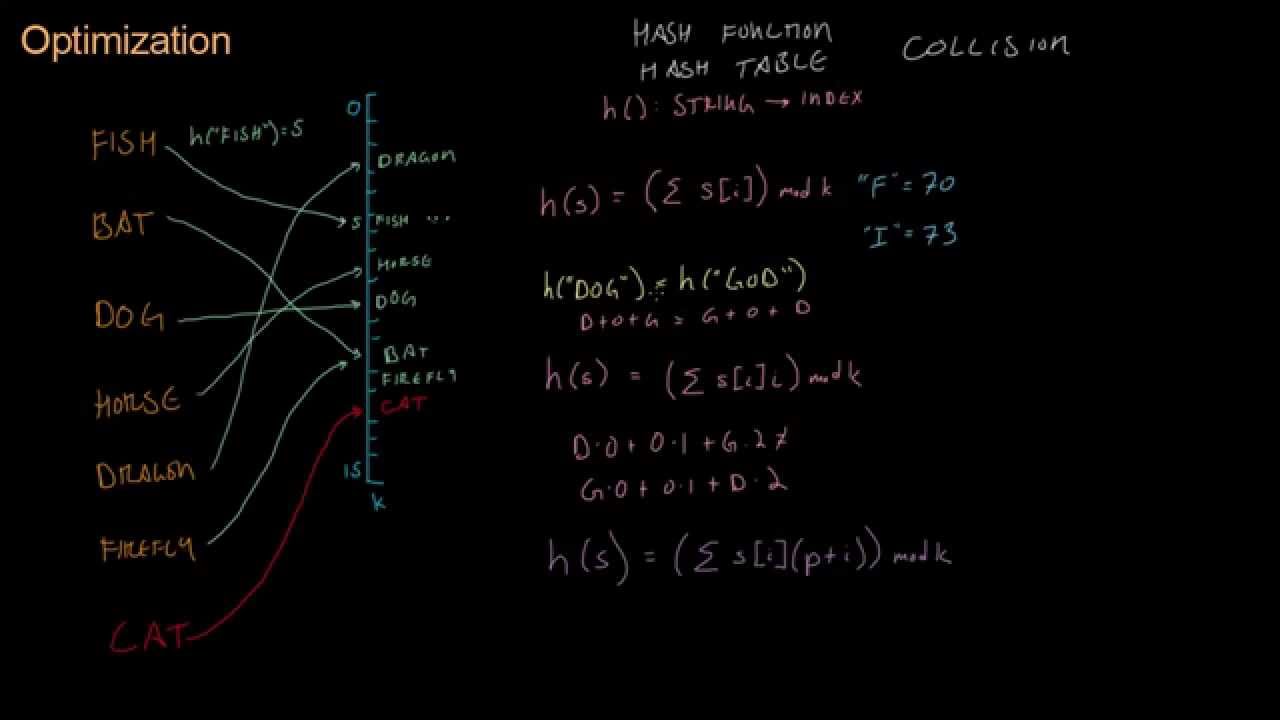 Optimization
HASH FUNCTION
HASH TABLE
COLLISION
h() : STRING → INDEX
FISH
h("FISH")=5
BAT
DOG
HORSE
DRAGON
FIREFLY
CAT
0
DRAGON
5 FISH ...
HORSE
DOG
BAT
FIREFLY
CAT
15
k
h(s) = (Σ s[i]) mod k "F" = 70
"I" = 73
h("DOG") = h("GOD")
D+O+G = G+O+D
h(s) = (Σ s[i]i) mod k
D·0 + O·1 + G·2 ≠
G·0 + O·1 + D·2
h(s) = (Σ s[i](p+i)) mod k